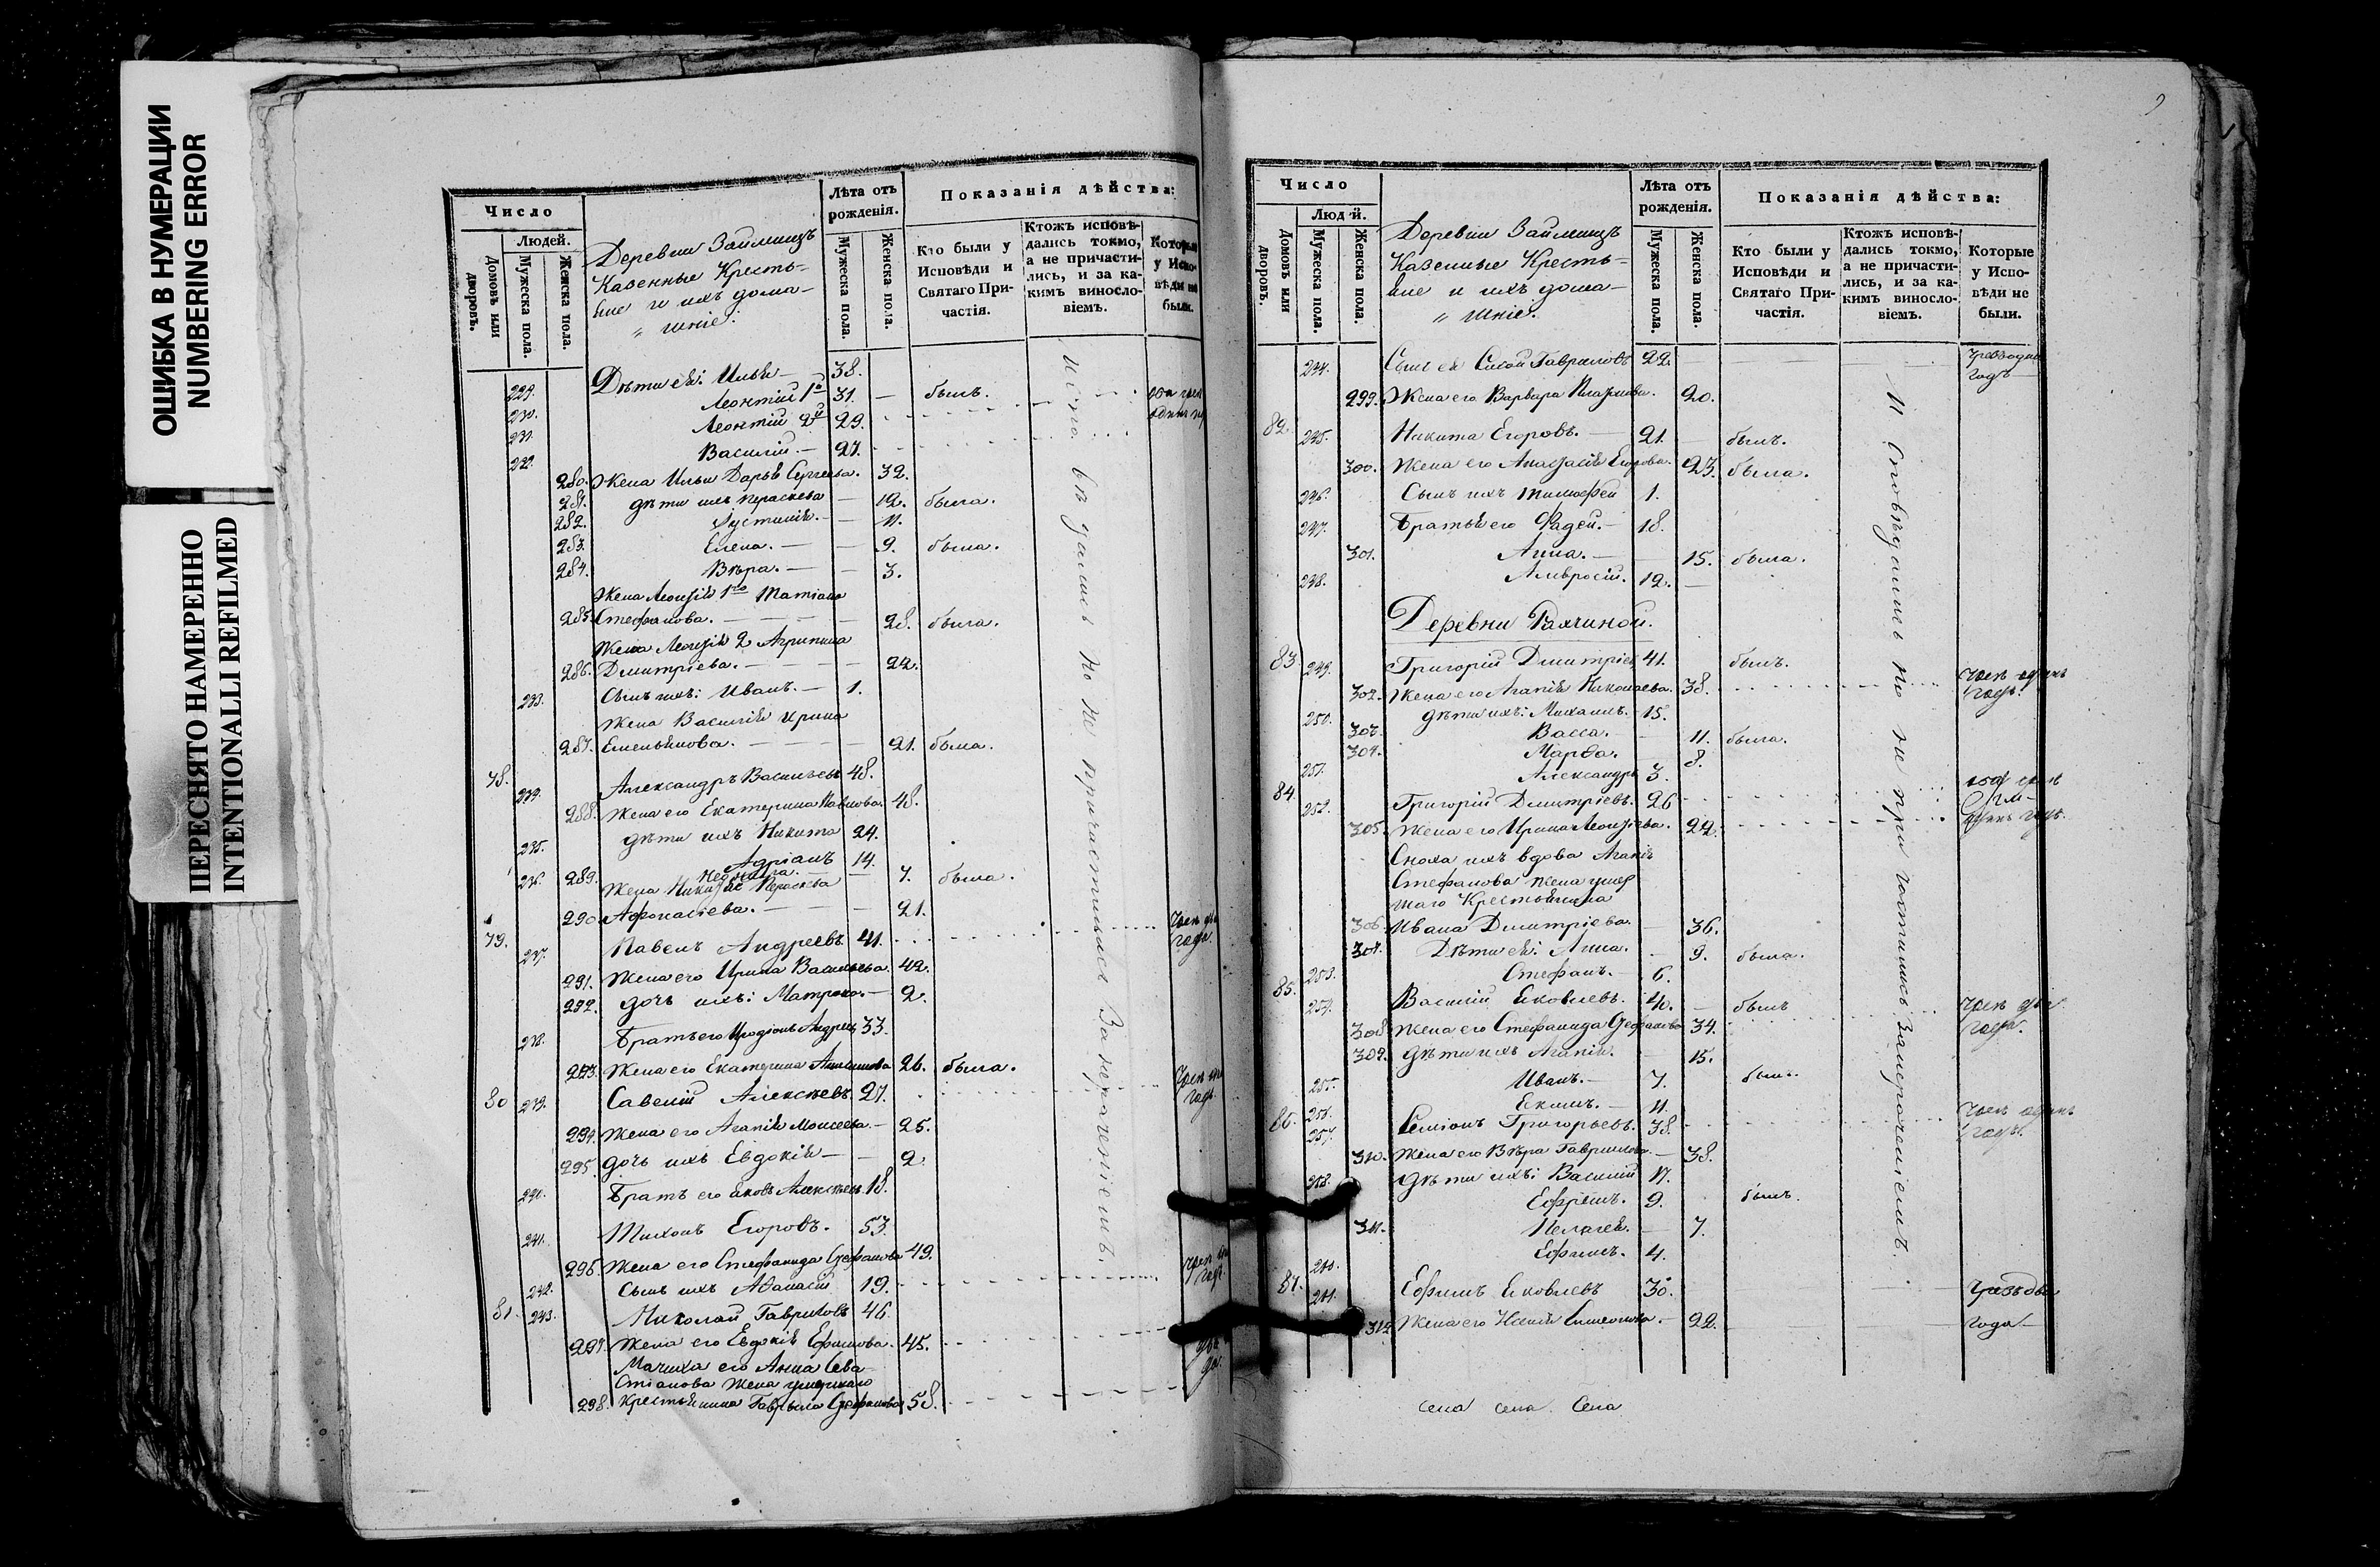 ОШИБКА В НУМЕРАЦИИ
NUMBERING ERROR
ПЕРЕСНЯТО НАМЕРЕННО
INTENTIONALLI REFILMED
Число
Людей.
Домовъ или дворовъ.
Мужеска пола.
Женска пола.
Деревни Займищъ
Казенные Кресть=
яне и ихъ дома-
„ шніе:
Лѣта отъ рожденія.
Мужеска пола.
Женска пола.
Показанія дѣйства:
Кто были у Исповѣди и Святаго Причастія.
Ктожъ исповѣдались токмо, а не причастились, и за какимъ винословіемъ.
Которые у Исповѣди не были.
229. Дѣти ея: Илья — 38.
230. Леонтій 1й 31. — былъ.
231. Леонтій 2й 29.
232. Василій. — 27.
280. Жена Ильи Дарья Сергеева. 32.
281. дѣти ихъ Параскева — 12. была.
282. Іустинія. — 11.
283. Елена. — — 9. была.
284. Вѣра. — — 3.
Жена Леонтія 1го Татіана
285. Стефанова. — 28. была.
Жена Леонтія 2 Агрипина
286. Дмитріева. — 22.
233. Сынъ ихъ: Иванъ. — 1.
Жена Василія Ирина
287. Емельянова. — 21. была.
78. 234. Александръ Васильевъ 48.
288. Жена его Екатерина Павлова. 48.
235. дѣти ихъ Никита 24.
236. Адріанъ 14.
289. — 7. была.
Жена Никиты Параскева
290. Афонасіева. — 21.
79. 237. Павелъ Андреевъ 41.
291. Жена его Ирина Васильева. 42.
292. дочь ихъ: Матрона. — 2.
238. Братъ его Иродіонъ Андреевъ 33.
293. Жена его Екатерина 26. была.
80 239. Савелій Алексѣевъ 27.
294. Жена его Агапія Моисеева. — 25.
295. дочь ихъ Евдокія — — 2
240. Братъ его Яковъ Алексѣевъ 18.
241. Тихонъ Егоровъ. 53.
296. Жена его Стефанида Стефанова 49.
242. Сынъ ихъ Афанасій 19.
81. 243. Николай Гавриловъ 46
297. Жена его Евдокія Ефимова. 45.
Мачиха его Анна Сева-
стіанова жена умершаго
298. Крестьянина Гаврила Стефанова 58.
Исповѣдались но не причастились За нераченіемъ.
Число
Людей.
Домовъ или дворовъ.
Мужеска пола.
Женска пола.
Деревни Займищъ
Казенные Кресть=
яне и ихъ дома-
„ шніе.
Лѣта отъ рожденія.
Мужеска пола.
Женска пола.
Показанія дѣйства:
Кто были у Исповѣди и Святаго Причастія.
Ктожъ исповѣдались токмо, а не причастились, и за какимъ винословіемъ.
Которые у Исповѣди не были.
244. Сынъ ея Гавриловъ 22.
299. Жена его Варвара 20.
82. 245. Никита Егоровъ. — 21. былъ.
300. Жена его Анастасія Егорова. 23. была.
246. Сынъ ихъ Тимофей 1.
247. Братья его Фадей. — 18.
301. Анна. — 15. была.
248. Амвросій. 12.
Деревни
83. 249. Григорій Дмитріевъ 41. былъ.
302. Жена его Агапія Николаева. 38. Чрезъ одинъ годъ.
250. дѣти ихъ: Михаилъ. — 15.
303. Васса. — 11. была.
304. Марфа. 8.
251. Александръ 3.
84. 252. Григорій Дмитріевъ. 26
305. Жена его Ирина Леонтіева. 22.
Сноха ихъ вдова Агапія
Стефанова жена умер
шаго Крестьянина
306. Ивана Дмитріева. — 36.
307. Дѣти ея: Анна. — 9. была.
253. Стефанъ. — 6.
85. 254. Василій Яковлевъ. 40. — былъ Чрезъ два года.
308. Жена его Стефанида Стефанова 34.
309. дѣти ихъ Агапія. 15.
255. Иванъ. — 7. былъ.
256. Екимъ. — 4.
86. 257. Семіонъ Григорьевъ. 38. Чрезъ одинъ годъ.
310. Жена его Вѣра Гаврилова. — 38.
258. дѣти ихъ: Василій 11.
Ефремъ. 9. былъ.
311. Пелагея. — 7.
260. Ефимъ. 4.
87. 261. Ефимъ Яковлевъ 30. Чрезъ два
312. Жена его — 22. года.
Исповѣдались но не причастились за нераченіемъ.